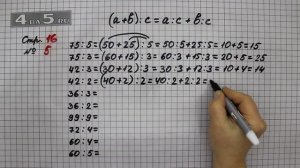 (a+b):c=a:c+b:c
Стр. 16
№ 5
75:5=(50+25):5=50:5+25:5=10+5=15
75:3=(60+15):3=60:3+15:3=20+5=25
42:3=(30+12):3=30:3+12:3=10+4=14
42:2=(40+2):2=40:2+2:2=
36:3=
36:2=
99:9=
72:4=
60:4=
60:5=